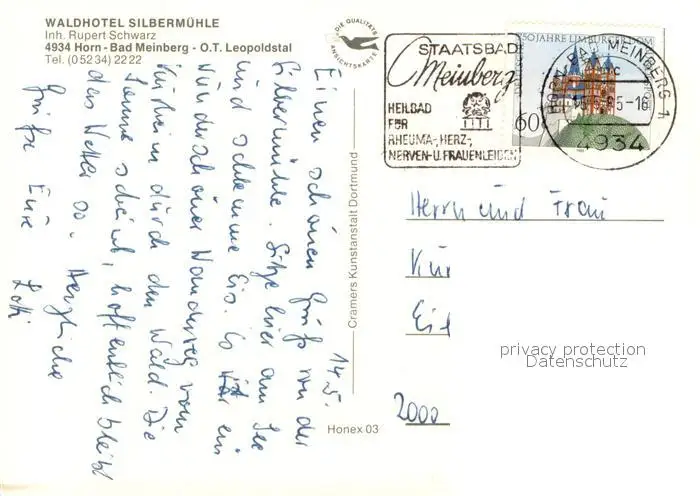 WALDHOTEL SILBERMÜHLE
Inh. Rupert Schwarz
4934 Horn - Bad Meinberg - O.T. Leopoldstal
Tel. (0 52 34) 22 22
DIE QUALITÄTS ANSICHTSKARTE
14.5.
Einen schönen Gruß von der
Silbermühle. Sitze hier am See
und schlemme Eis. Es war ein
wunderschöner Wanderweg vom
Kurheim durch den Wald. Die
Sonne scheint, hoffentlich bleibt
das Wetter so. Herzliche
Grüße Eure
Cramers Kunstanstalt Dortmund
Honex 03
STAATSBAD
Meinberg
HEILBAD
FÜR
RHEUMA-, HERZ-,
NERVEN- U. FRAUENLEIDEN
750 JAHRE LIMBURGER DOM
60
HORN-BAD MEINBERG 1
4934
Herrn und Frau
2000
privacy protection
Datenschutz